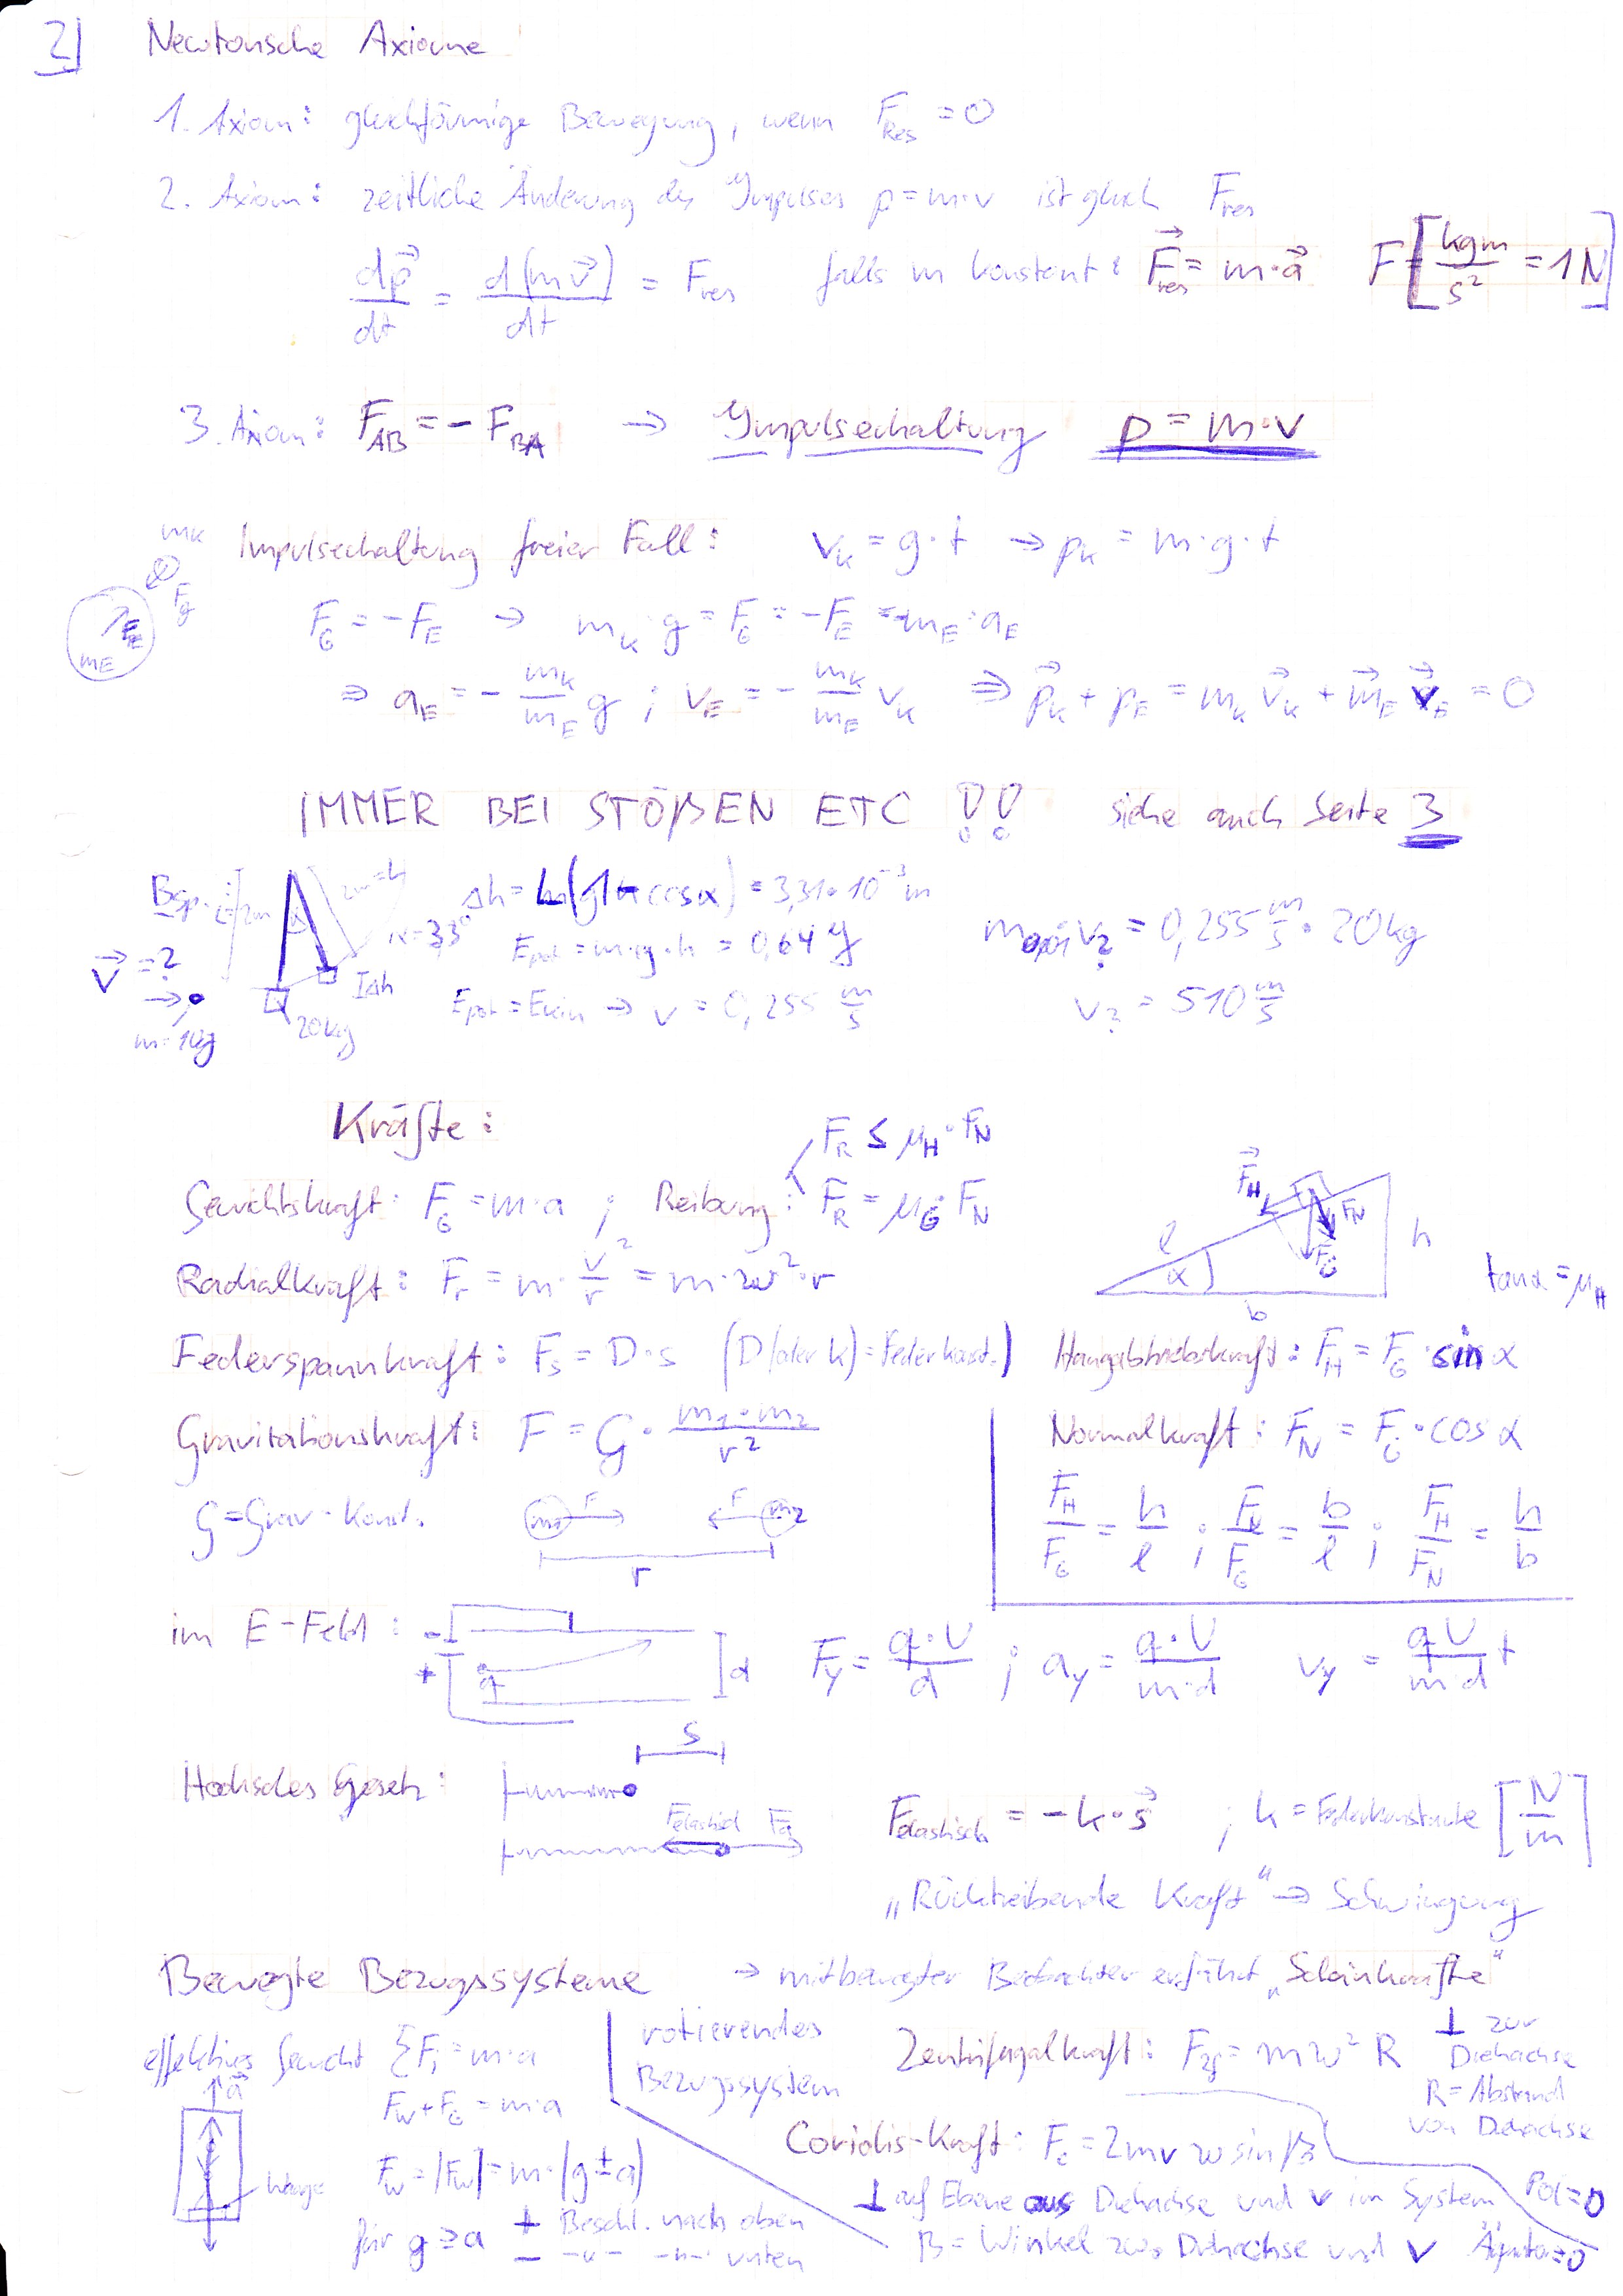 2
Newtonsche Axiome
1. Axiom: gleichförmige Bewegung, wenn F_Res = 0
2. Axiom: zeitliche Änderung des Impulses p = m·v ist gleich F_res
dp⃗/dt = d(mv⃗)/dt = F_res falls m konstant: F⃗_res = m·a⃗ F [kgm/s² = 1N]
3. Axiom: F_AB = - F_BA → Impulserhaltung p = m·v
m_K
Impulserhaltung freier Fall: v_K = g·t → p_K = m·g·t
F_g
F_E
m_E
F_G = -F_E → m_K·g = F_G = -F_E = -m_E·a_E
⇒ a_E = - m_K/m_E g ; v_E = - m_K/m_E v_K ⇒ p⃗_K + p_E = m_K v⃗_K + m⃗_E v⃗_E = 0
IMMER BEI STÖßEN ETC !! siehe auch Seite 3
Bsp. L=2m 2m=L α=3,3° Δh = L(1-cosα) = 3,31·10⁻³m
E_pot = m·g·h = 0,64 J
v⃗ = ?
m = 10g
20kg
Δh
E_pot = E_kin → v = 0,255 m/s
v_? = 0,255 m/s · 20kg
v_? = 510 m/s
Kräfte:
F_R ≤ μ_H · F_N
Gewichtskraft: F_G = m·a ; Reibung: F_R = μ_G · F_N
F⃗_H F_N F_G l h α b
tanα = μ_H
Radialkraft: F_r = m · v²/r = m·ω²·r
Federspannkraft: F_s = D·s (D (oder k) = Federkonst.)
Hangabtriebskraft: F_H = F_G · sin α
Gravitationskraft: F = G · m₁·m₂/r²
Normalkraft: F_N = F_G · cos α
G = Grav-Konst.
m₁ F F m₂
r
F_H/F_G = h/l ; F_N/F_G = b/l ; F_H/F_N = h/b
im E-Feld: - + q d F_y = q·U/d ; a_y = q·U/m·d v_y = qU/m·d t
s
Hooksches Gesetz:
F_elastisch F_a
F_elastisch = -k·s⃗ ; k = Federkonstante [N/m]
„Rücktreibende Kraft“ → Schwingung
Bewegte Bezugssysteme → mitbewegter Beobachter erfährt „Scheinkräfte“
effektives Gewicht ΣF_i = m·a
a⃗
F_W + F_G = m·a
Waage F_W = |F_W| = m·(g±a)
für g ≥ a + Beschl. nach oben
- -"- -"- unten
rotierendes
Bezugssystem
Zentrifugalkraft: F_zf = mω²R ⊥ zur
Drehachse
R = Abstand
von Drehachse
Coriolis-Kraft: F_c = 2mvω sinβ
⊥ auf Ebene aus Drehachse und v im System
β = Winkel zws Drehachse und v
Pol = 0